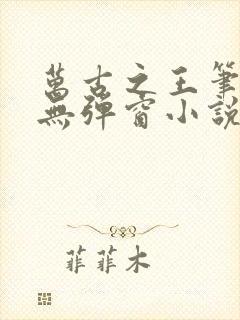 萬古之王筆
無彈窗小說
菲菲木